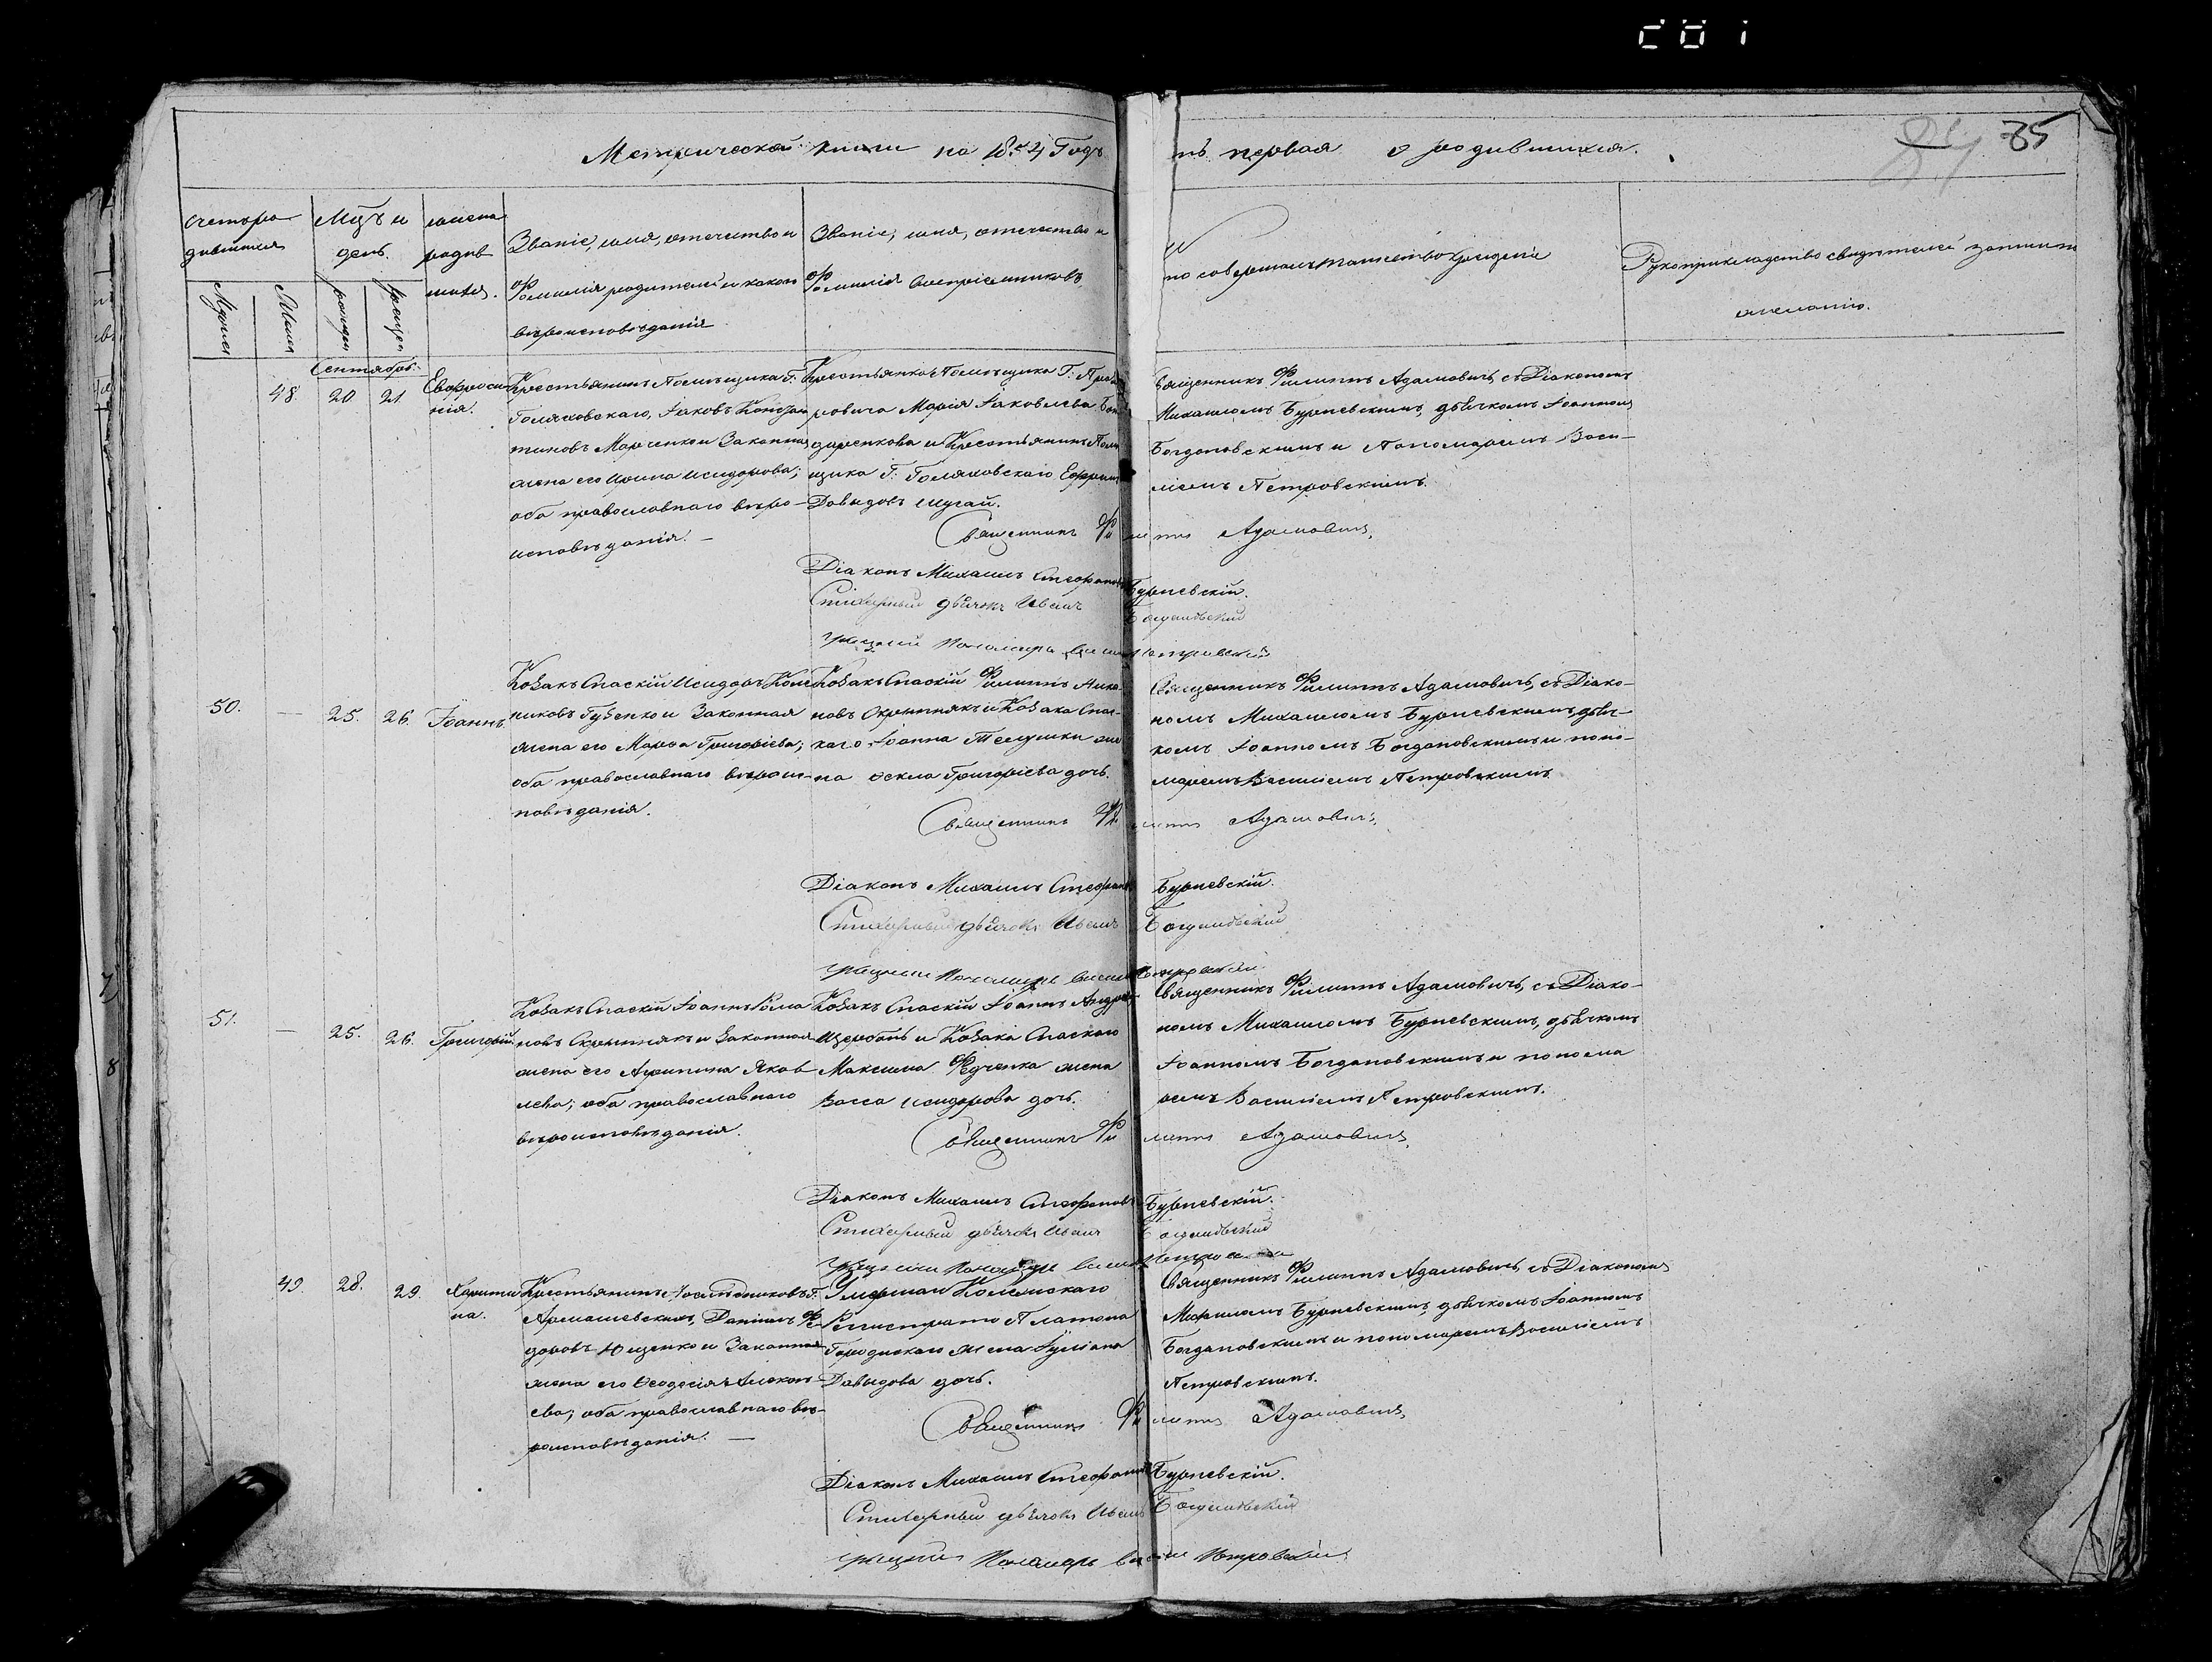 Метрической книги на 1854 Годъ часть первая о родившихся.
85
Счетъ ро-
дившихся
Мцъ и
день.
имена
родив
шихся.
Званіе, имя, отечество и
фамилія родителей и какого
вѣроисповѣданія
Званіе, имя, отечество и
фамилія Воспріемниковъ
Кто совершалъ таинство крещенія
Рукоприкладство свидѣтелей записи
по желанію.
Мужеска
Женска
рожден
крещен
Сентябрь.
48.
20
21
Евфроси-
нія.
Крестьянинъ Помѣщика Г:
Голяховскаго, Іаковъ Констан
тиновъ Марченко и Законная
жена его Ирина Исидорова;
оба православнаго вѣро-
исповѣданія. —
Крестьянка Помѣщика Г:
ровича Марія Іаковлева
даренкова и Крестьянинъ Помѣ
щика Г: Голяховскаго Ефрем
Давыдовъ Шугай.
Священникъ Филиппъ Адамовичъ, съ Діакономъ
Михаиломъ Бурневскимъ, дьячкомъ Іоанномъ
Богдановскимъ и Пономаремъ Васи-
ліемъ Петровскимъ.
Священникъ Филиппъ Адамовичъ,
Діаконъ Михаилъ Стефановъ Бурневскій.
Стихарный дьячокъ Иванъ Богдановскій
Пономарь Василій Петровскій
50.
—
25.
26.
Іоаннъ
Козакъ Спаскій Исидоръ
никовъ Гузенко и Законная
жена его Марѳа Григоріева;
оба православнаго вѣроис-
повѣданія.
Козакъ Спаскій Филиппъ
новъ Скрыпнякъ и Козака Спас-
каго Іоанна жe
на Ѳекла Григоріева дочь.
Священникъ Филиппъ Адамовичъ, съ Діако-
номъ Михаиломъ Бурневскимъ, дьяч-
комъ Іоанномъ Богдановскимъ и поно-
маремъ Василіемъ Петровскимъ
Священникъ Филиппъ Адамовичъ,
Діаконъ Михаилъ Стефановъ Бурневскій.
Стихарный дьячокъ Иванъ Богдановскій
Пономарь Василій Петровскій
51.
—
25.
26.
Григорій
Козакъ Спаскій Іоаннъ Рома
новъ Скрыпнякъ и Законная
жена его Агрипина Яков
лева; оба православнаго
вѣроисповѣданія.
Козакъ Спаскій Іоаннъ Андреев
Щербань и Козака Спаскаго
Максима Федченка жена
Васса Исидорова дочь.
Священникъ Филиппъ Адамовичъ, съ Діако-
номъ Михаиломъ Бурневскимъ, дьячкомъ
Іоанномъ Богдановскимъ и понома
ремъ Василіемъ Петровскимъ.
Священникъ Филиппъ Адамовичъ,
Діаконъ Михаилъ Стефановъ Бурневскій.
Стихарный дьячокъ Иванъ Богдановскій
Пономарь Василій Петровскій
49.
28.
29.
Харити
на.
Крестьянинъ Наслѣдниковъ Г:
Армашевскихъ, Даніилъ Фе-
доровъ Ющенко и Законная
жена его Ѳеодосія
ева; оба православнаго вѣ-
роисповѣданія. —
Умершаго Колежскаго
Регистратора Платона
Городискаго жена Іуліана
Давыдова дочь.
Священникъ Филиппъ Адамовичъ, съ Діакономъ
Михаиломъ Бурневскимъ, дьячкомъ Іоанномъ
Богдановскимъ и пономаремъ Василіемъ
Петровскимъ.
Священникъ Филиппъ Адамовичъ,
Діаконъ Михаилъ Стефановъ Бурневскій.
Стихарный дьячокъ Иванъ Богдановскій
Пономарь Василій Петровскій